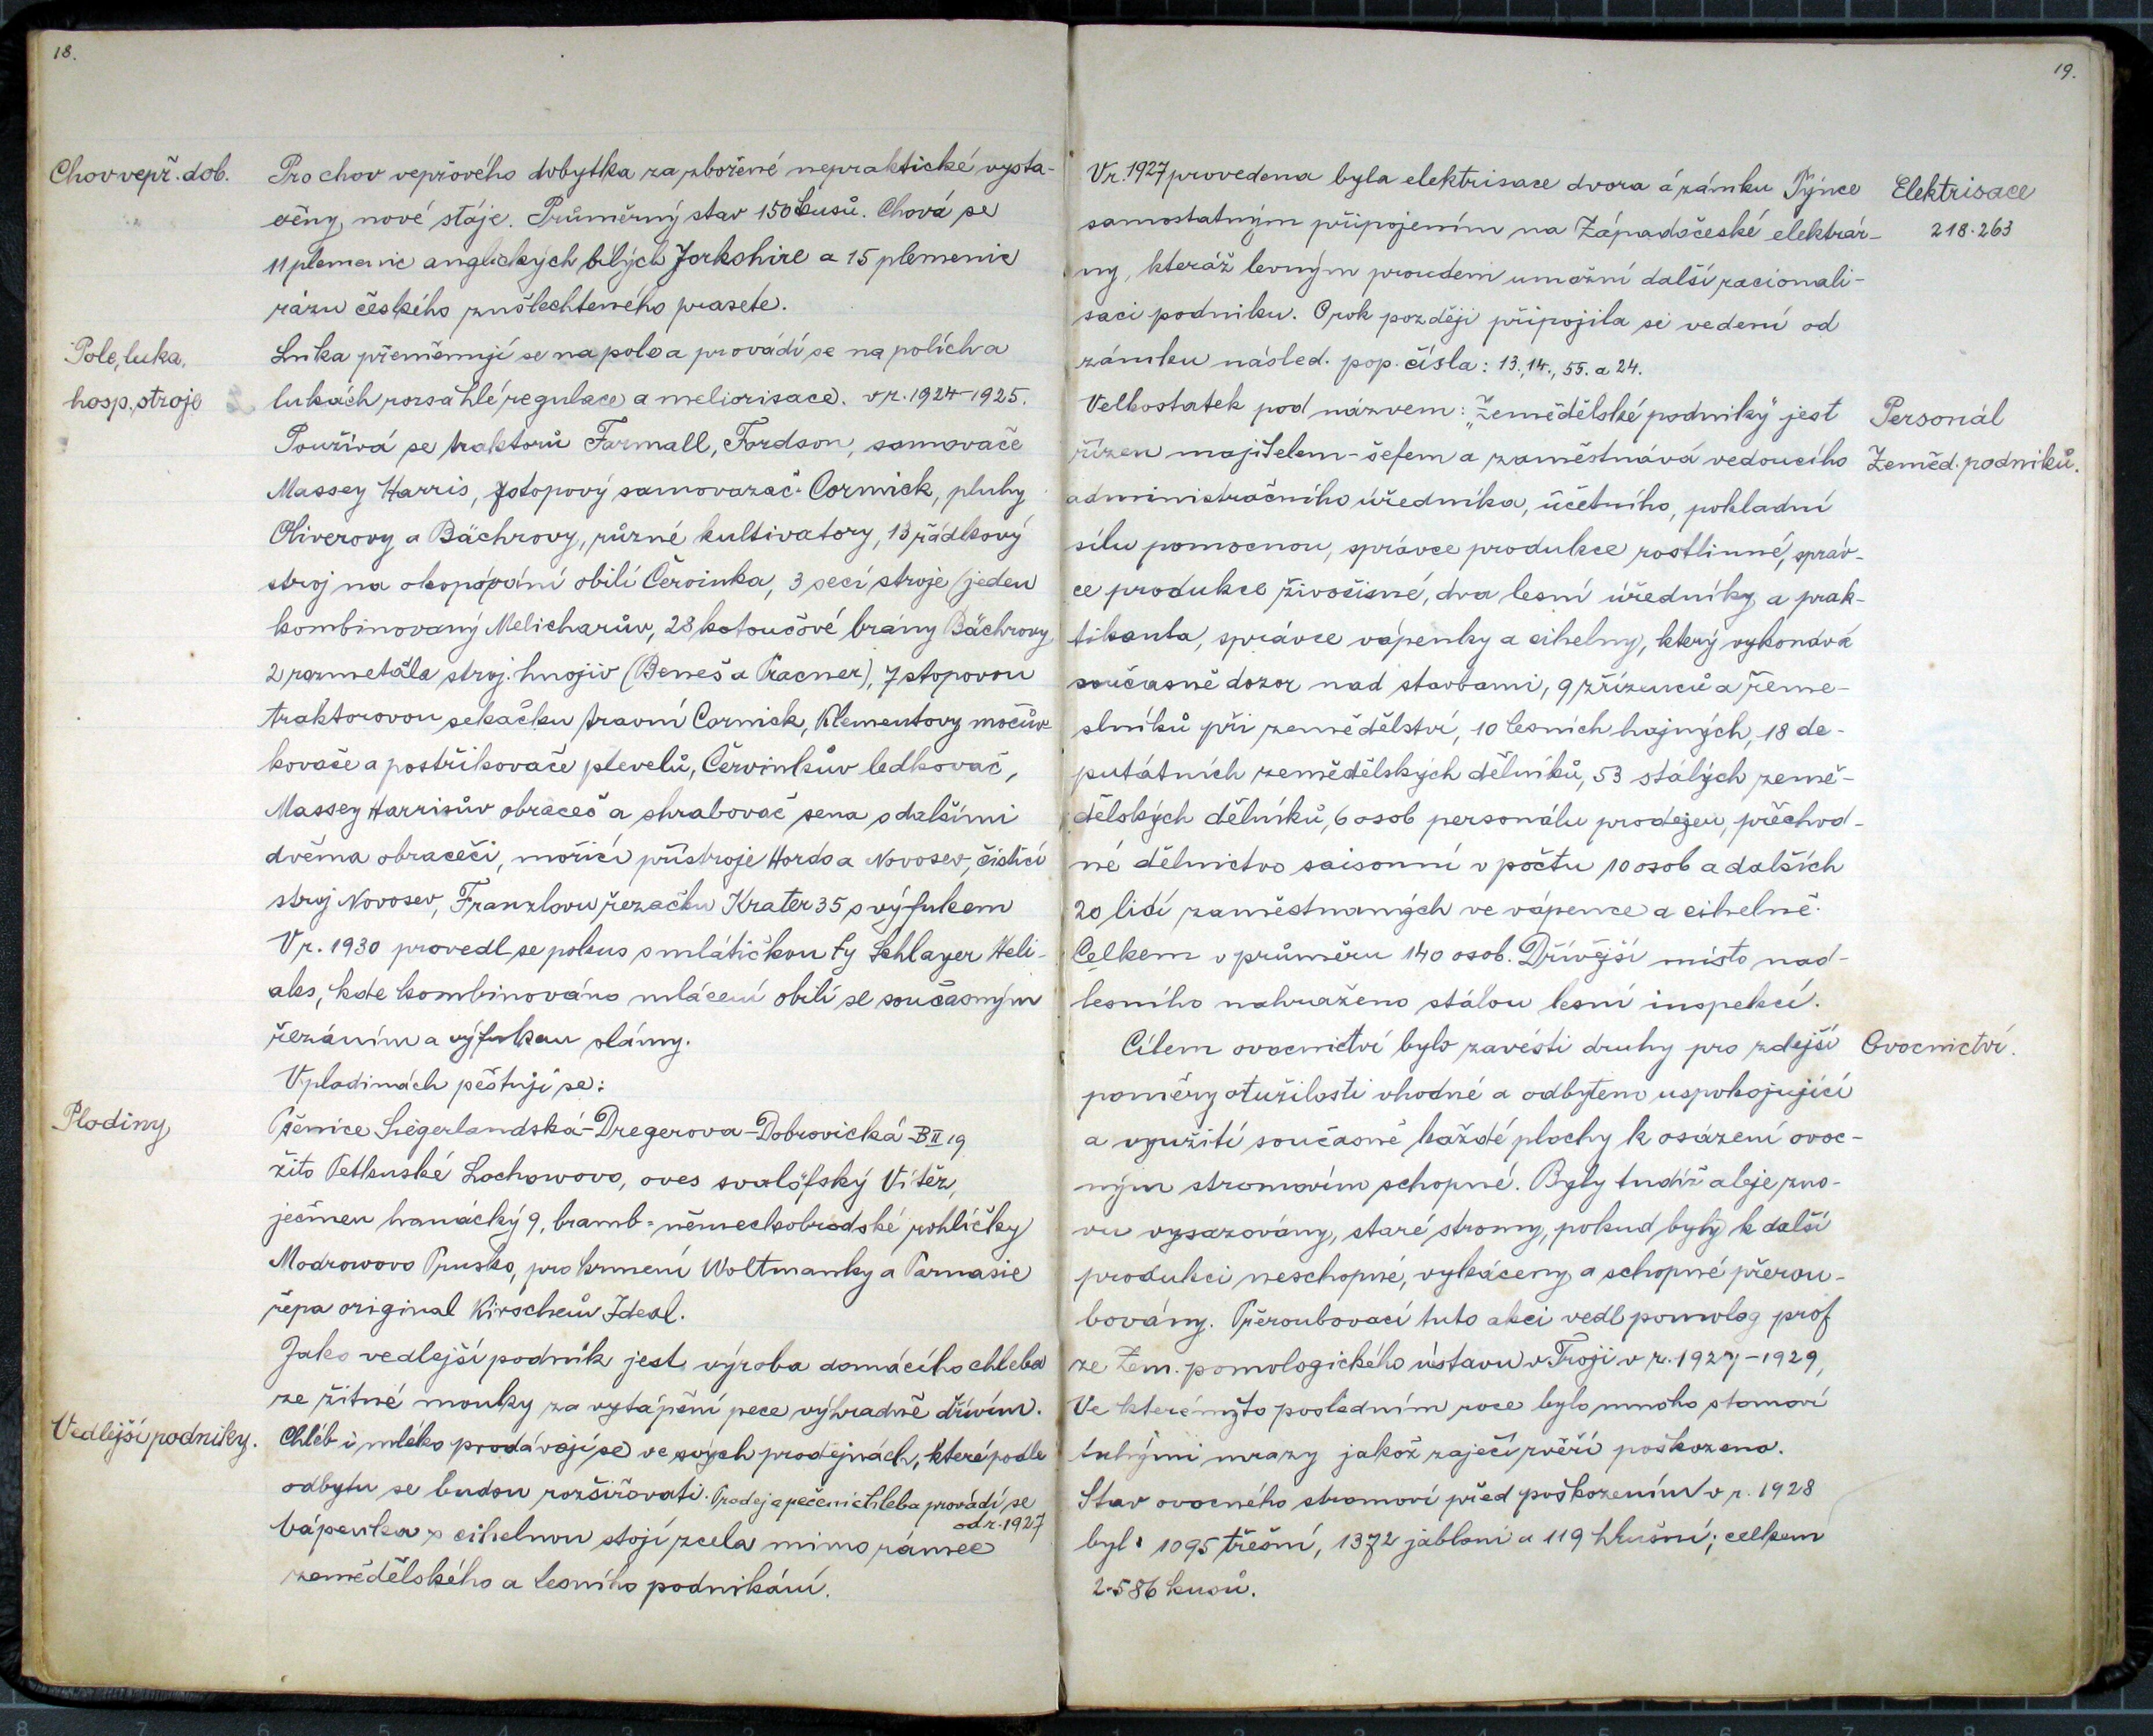 18.
Chov vepř. dob.
Pro chov vepřového dobytka za zbořené nepraktické vysta-
věny, nové stáje. Průměrný stav 150 kusů. Chová se
11 plemenic anglických bílých Jorkshire a 15 plemenic
rázu českého zušlechteného prasete.
Pole, luka,
hosp. stroje
Luka přeměnují se na pole a provádí se na polích a
lukách rozsáhlé regulace a meliorisace. v r. 1924-1925.
Používá se traktorů Farmall, Fordson, samovače
Massey Harris, 7stopový samovazač Cormick, pluhy
Oliverovy a Bächrovy, různé kultivatory, 13 řádkový
stroj na okopávání obilí Červinka, 3 secí stroje /jeden
kombinovaný Melicharův, 28 kotoučové brány Bächrovy
2 rozmetála stroj. hnojiv (Beneš a Pracner), 7 stopovou
traktorovou sekačku travní Cormick, Klementovy močův-
kovače a postřikovače plevelů, Červinkův ledkovač,
Massey Harrisův obraceč a shrabovač sena s dalšími
dvěma obraceči, mořící přístroje Hordo a Novosev, čistící
stroj Novosev, Franzlovu řezačku Krater 35 s výfukem
V r. 1930 provedl se pokus s mlátičkou fy Schlayer Heli-
aks, kde kombinováno mlácení obilí se současným
řezáním a výfukem slámy.
V plodinách pěstují se:
Plodiny
Pšenice Siegerlandská-Dregerova-Dobrovická-B II 19
žito Petkuské Lochowovo, oves svalöfský Vítěz,
ječmen hanácký 9, bramb = německobrodské rohlíčky
Modrowovo Prusko, pro krmení Woltmanky a Parnasie
řepa original Kirscheův Ideal.
Jako vedlejší podnik jest výroba domácího chleba
ze žitné mouky za vytápění pece výhradně dřívím.
Vedlejší podniky.
Chléb i mléko prodávají se ve svých prodejnách, které podle
odbytu se budou rozšiřovati. Prodej a pečení chleba provádí se
od r. 1927
Vápenka s cihelnou stojí zcela mimo rámec
zemědělského a lesního podnikání.
19.
V r. 1927 provedena byla elektrisace dvora a zámku Týnce
samostatným připojením na Západočeské elektrár-
ny, kteráž levným proudem umožní další racionali-
saci podniku. O rok později připojila se vedení od
zámku násled. pop. čísla: 13., 14., 55. a 24.
Elektrisace
218.263
Velkostatek pod názvem: „Zemědělské podniky" jest
řízen majitelem-šefem a zaměstnává vedoucího
administračního úředníka, účetního, pokladní
sílu pomocnou, správce produkce rostlinné, správ-
ce produkce živočišné, dva lesní úředníky a prak-
tikanta, správce vápenky a cihelny, který vykonává
současně dozor nad stavbami, 9 zřízenců a řeme-
slníků při zemědělství, 10 lesních hajných, 18 de-
putátních zemědělských dělníků, 53 stálých země-
dělských dělníků, 6 osob personálu prodejen, přechod-
né dělnictvo saisonní v počtu 10 osob a dalších
20 lidí zaměstnaných ve vápence a cihelně.
Celkem v průměru 140 osob. Dřívější místo nad-
lesního nahraženo stálou lesní inspekcí.
Personál
Zeměd. podniků.
Cílem ovocnictví bylo zavésti druhy pro zdejší
poměry otužilosti vhodné a odbytem uspokojující
a využití současně každé plochy k osázení ovoc-
ným stromovím schopné. Byly tudíž aleje zno-
vu vysazovány, staré stromy, pokud byly k další
produkci neschopné, vykáceny a schopné přerou-
bovány. Přeroubovací tuto akci vedl pomolog prof
ze Zem. pomologického ústavu v Troji v r. 1927-1929,
Ve kterémžto posledním roce bylo mnoho stomoví
tuhými mrazy jakož zaječí zvěří poškozeno.
Stav ovocného stromoví před poškozením v r. 1928
byl: 1095 třešní, 1372 jabloní a 119 hrušní; celkem
2.586 kusů.
Ovocnictví.